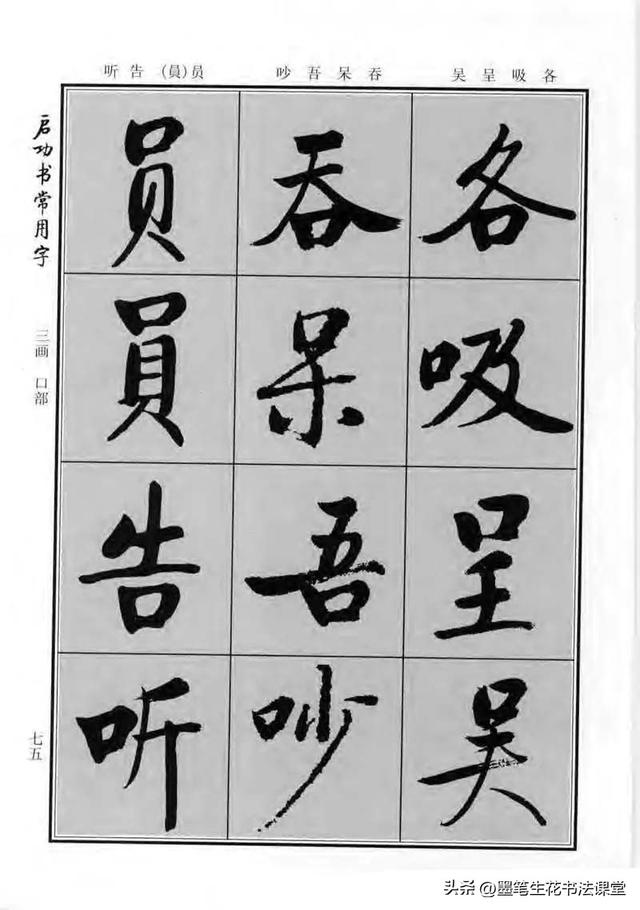 听告(員)员
吵吾呆吞
吴呈吸各
启功书常用字
三画 口部
七五
各
吸
呈
吴
吞
呆
吾
吵
员
員
告
听
头条 @墨笔生花书法课堂